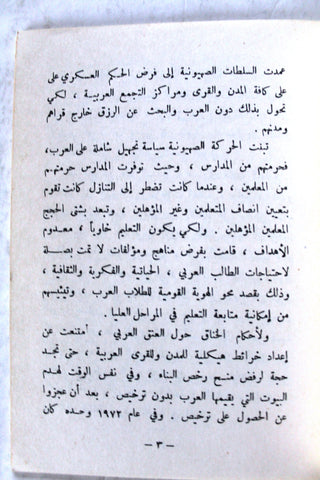 عمدت السلطات الصهيونية إلى فرض الحكم العسكري على
على كافة المدن والقرى ومراكز التجمع العربية ، لكي
تحول بذلك دون العرب والبحث عن الرزق خارج قراهم
ومدنهم .
تبنت الحركة الصهيونية سياسة تجهيل شاملة على العرب،
فحرمتهم من المدارس ، وحيث توفرت المدارس حرمتهم
من المعلمين ، وعندما كانت تضطر إلى التنازل كانت تقوم
بتعيين انصاف المتعلمين وغير المؤهلين ، وتبعد بشتى الحجج
المعلمين المؤهلين . ولكي يكون التعليم خاوياً ، معدوم
الأهداف ، قامت بفرض مناهج ومؤلفات لا تمت بصلة
لاحتياجات الطالب العربي ، الحياتية والفكرية والثقافية ،
وذلك بقصد محو الهوية القومية للطلاب العرب ، وتيئيسهم
من إمكانية متابعة التعليم في المراحل العليا .
ولأحكام الخناق حول العنق العربي ، أمتنعت عن
إعداد خوائط هيكلية للمدن وللقرى العربية ، حتى تجد
حجة لرفض منح رخص البناء ، وفي نفس الوقت لهدم
البيوت التي يقيمها العرب بدون ترخيص ، بعد أن عجزوا
عن الحصول على ترخيص . وفي عام ١٩٧٢ وحده كان
– ٣ –